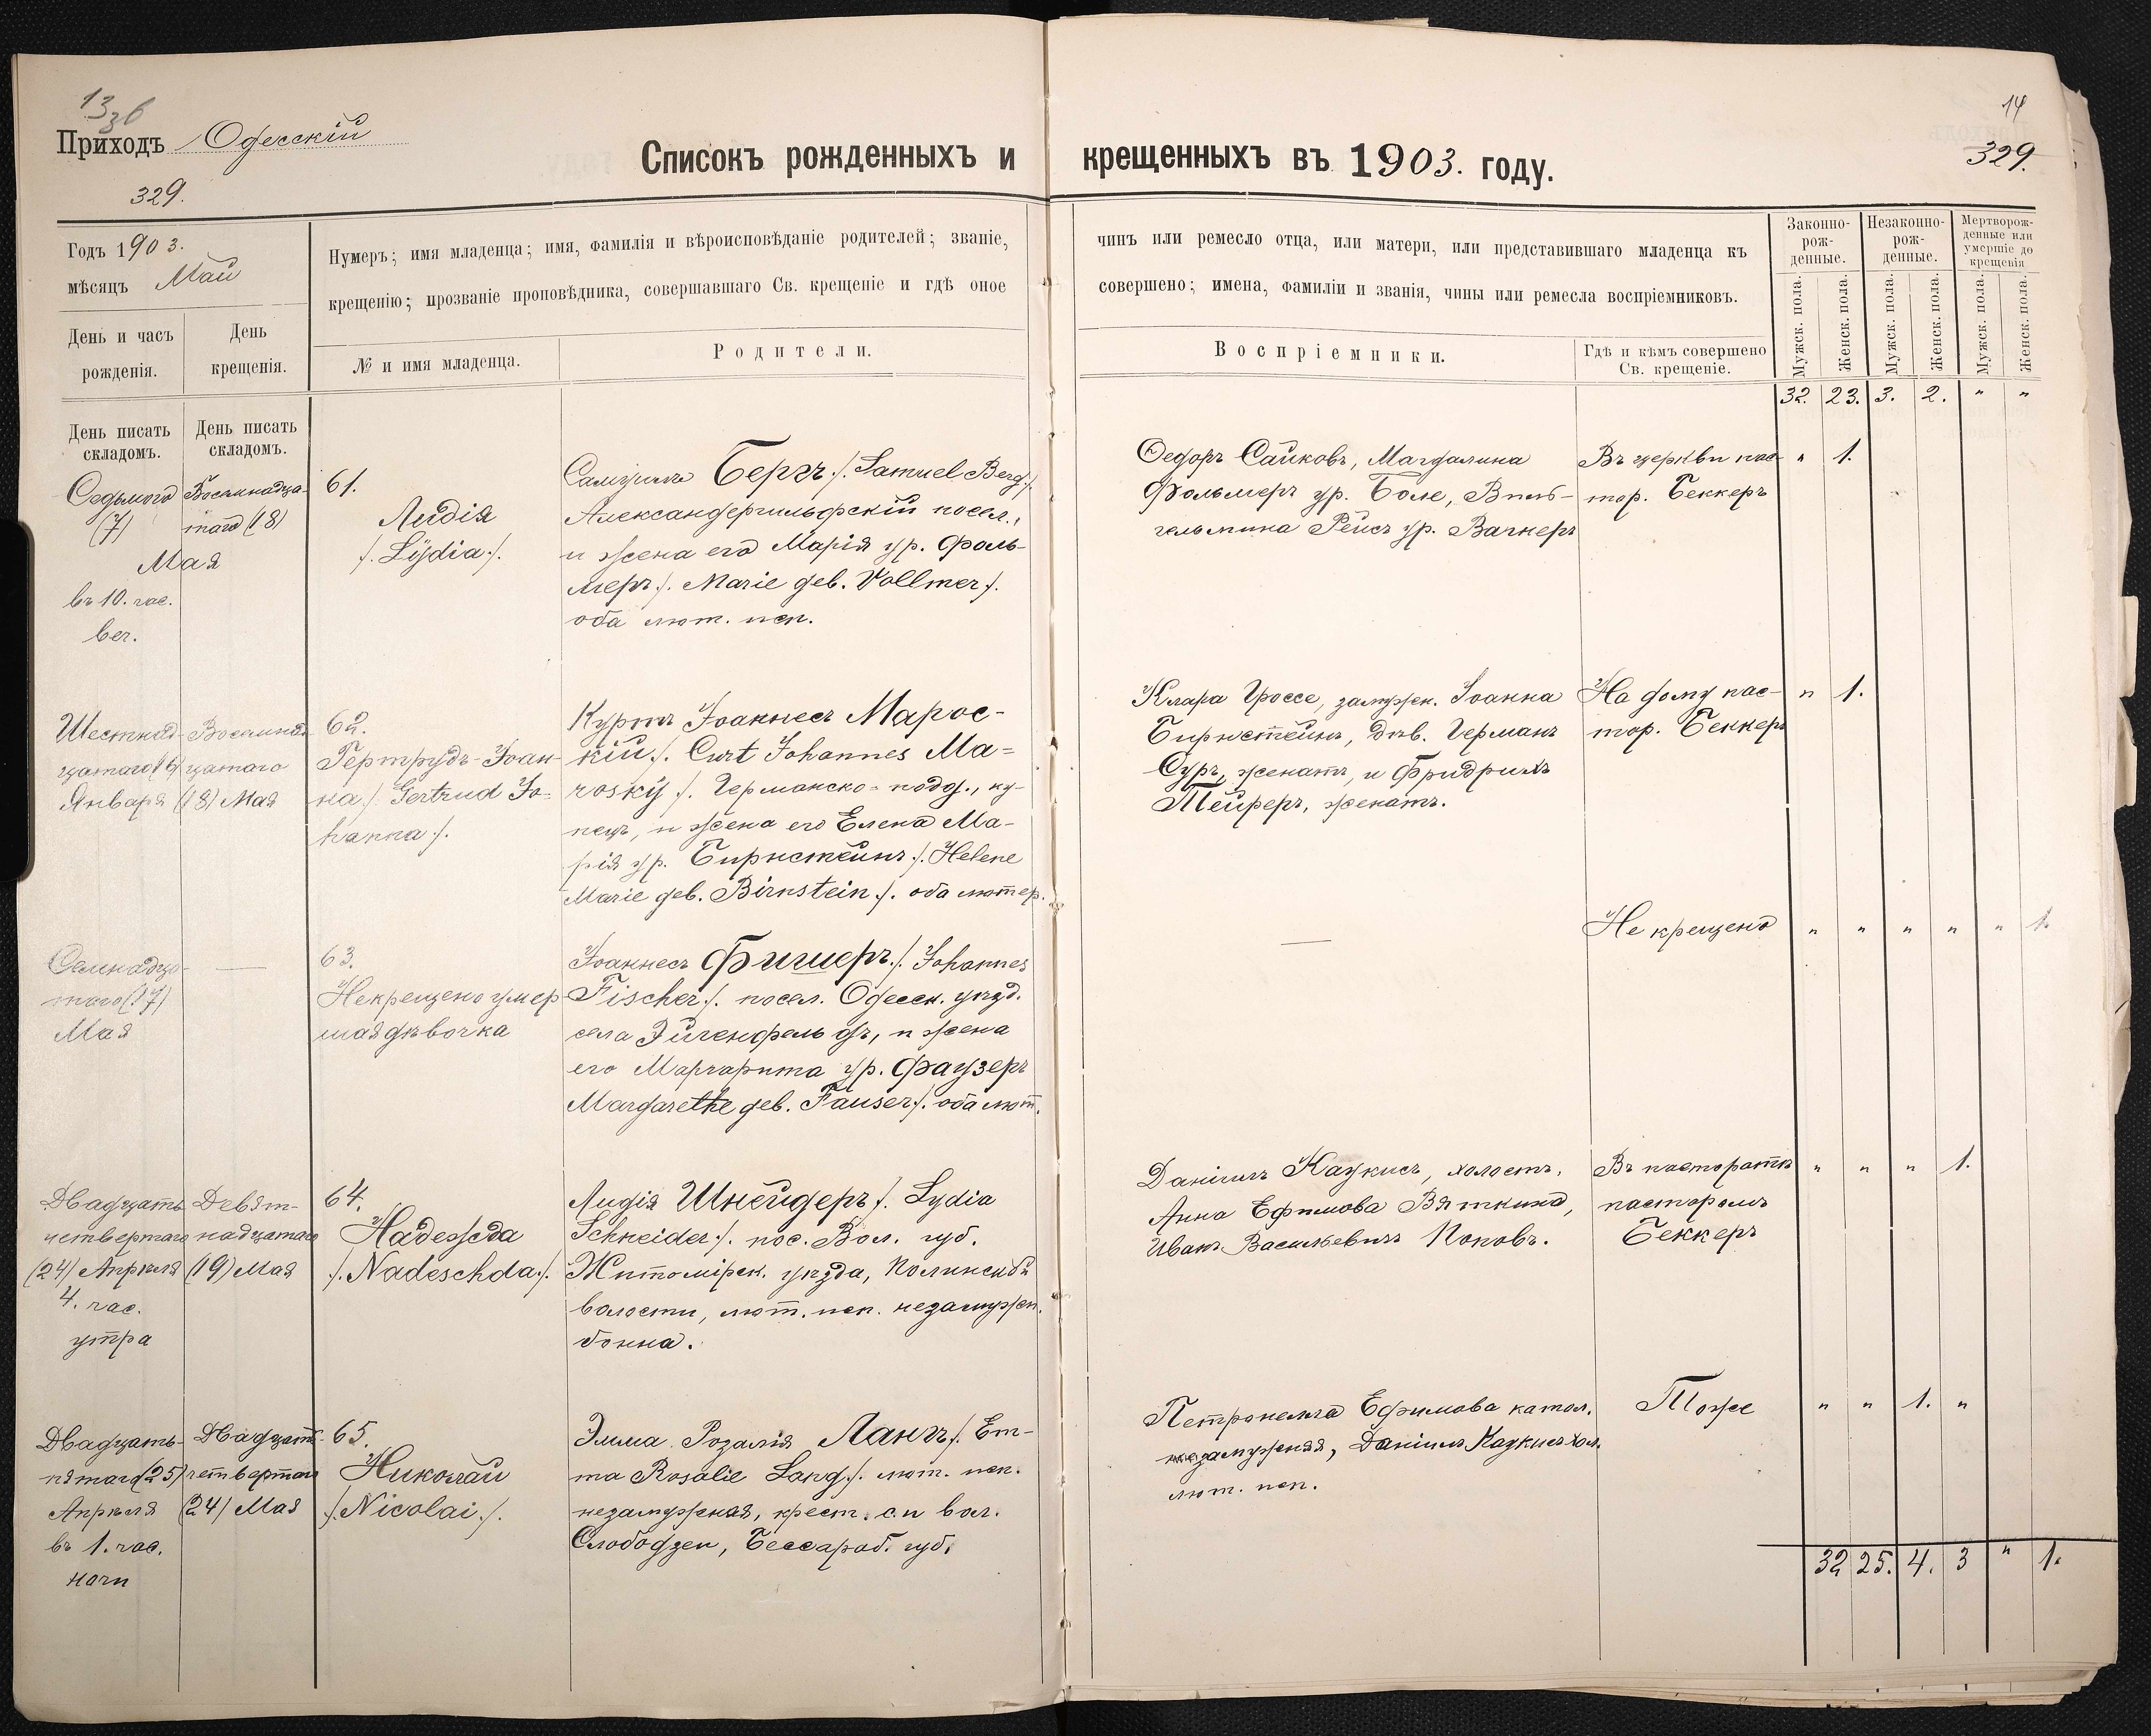 13
36
Приходъ Одесскій
329.
Списокъ рожденныхъ и крещенныхъ въ 1903. году.
14
329.
Годъ 1903.
мѣсяцъ Май
Нумеръ; имя младенца; имя, фамилія и вѣроисповѣданіе родителей; званіе,
крещенію; прозваніе проповѣдника, совершавшаго Св. крещеніе и гдѣ оное
чинъ или ремесло отца, или матери, или представившаго младенца къ
совершено; имена, фамиліи и званія, чины или ремесла воспріемниковъ.
День и часъ
рожденія.
День
крещенія.
№ и имя младенца.
Родители.
Воспріемники.
Гдѣ и кѣмъ совершено
Св. крещеніе.
Законно-
рож-
денные.
Незаконно-
рож-
денные.
Мертворож-
денные или
умершіе до
крещенія
Мужск. пола.
Женск. пола.
Мужск. пола.
Женск. пола.
Мужск. пола.
Женск. пола.
32. 23. 3. 2. " "
День писать
складомъ.
День писать
складомъ.
Седьмого
(7)
Мая
въ 10. час.
веч.
Восемнадца-
таго (18)
61.
Лидія
/. Lÿdia ./.
Самуилъ Бергъ /. Samuel Berg ./.
Александергильфскій посел.,
и жена его Марія ур. Фоль-
меръ /. Marie geb. Vollmer ./.
оба лют. исп.
Ѳедоръ Сайковъ, Магдалина
Фольмеръ ур. Боле, Виль-
гельмина Рейсъ ур. Вагнеръ
Въ церкви пас-
тор. Беккеръ
" 1.
Шестнад-
цатаго (16)
Января
Восемнад-
цатаго
(18) Мая
62.
Гертрудъ-Іоан-
на /. Gertrud Jo-
hanna ./.
Куртъ Іоаннесъ Марос-
кій /. Curt Johannes Ma-
roskÿ ./. Германско-подд., ку-
пецъ, и жена его Елена Ма-
рія ур. Бирнстейнъ /. Helene
Marie geb. Birnstein ./. оба лютер.
Клара Гроссе, замужн. Іоанна
Бирнстейнъ, дѣв. Германъ
Суръ, женатъ, и Фридрихъ
Пейферъ, женатъ.
На дому пас-
тор. Беккеръ
" 1.
Семнадца-
таго (17)
Мая
—
63.
Некрещено умер-
шая дѣвочка
Іоаннесъ Фишеръ /. Johannes
Fischer ./. посел. Одесск. уѣзд.
села Эйгенфельдъ, и жена
его Маргарита ур. Фаузеръ
Margarethe geb. Fauser ./. оба лют.
—
Не крещено
" " " " " 1.
Двадцать
четвертаго
(24) Апрѣля
4. час.
утра
Девят-
надцатаго
(19) Мая
64.
Надежда
/. Nadeschda ./.
Лидія Шнейдеръ /. Lydia
Schneider ./. пос. Вол. губ.
Житомірск. уѣзда,
волости, лют. исп. незамужн.
бонна.
Даніилъ Каукисъ, холостъ,
Анна Ефимова Вяткина,
Иванъ Васильевичъ Поповъ.
Въ пасторатѣ
пасторомъ
Беккеръ
" " " 1.
Двадцать-
пятаго (25)
Апрѣля
въ 1. час.
ночи
Двадцать-
четвертаго
(24) Мая
65.
Николай
/. Nicolai ./.
Эмма Розалія Лангъ /. Em-
ma Rosalie Lang ./. лют. исп.
незамужная, крест. с. и вол.
Слободзеи, Бессараб. губ.
Петронелла Ефимова катол.
незамужняя, Даніилъ Каукисъ хол.
лют. исп.
Тоже
" " 1. "
32 25. 4. 3 " 1.